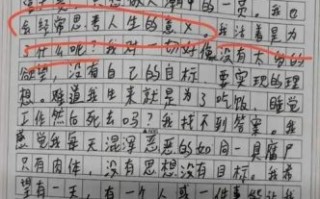 中的一员。我也
会经常思考人生的意义，我活着是为
了什么呢？我对一切好像没有太多的
欲望，没有自己的目标，要实现的理
想。难道我生来就是为了吃饭，睡觉
工作然后死去吗？我找不到答案。我
感觉我每天混浑恶恶的如同一具腐尸
只有肉体，没有思想没有目标。我希
望有一天，有一个人或一件事能让我